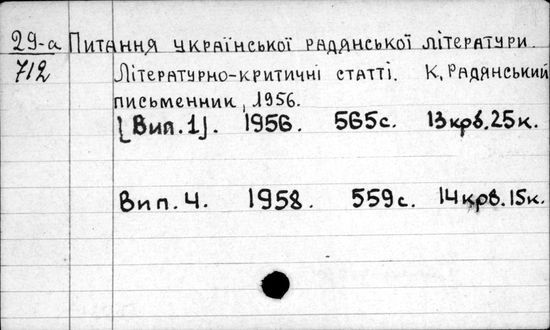 29-а Питання української радянської літератури.
712 Літературно-критичні статті. К, Радянський
письменник, 1956.
[Вип.1]. 1956. 565с. 13крб.25к.
Вип.4. 1958. 559с. 14крв.15к.